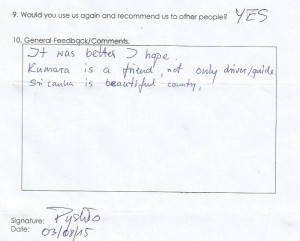 9. Would you use us again and recommend us to other people? YES
10. General Feedback/Comments.
It was better I hope.
Kumara is a friend, not only driver/guide
Sri Lanka is beautiful county,
Signature:
Date: 03/08/15